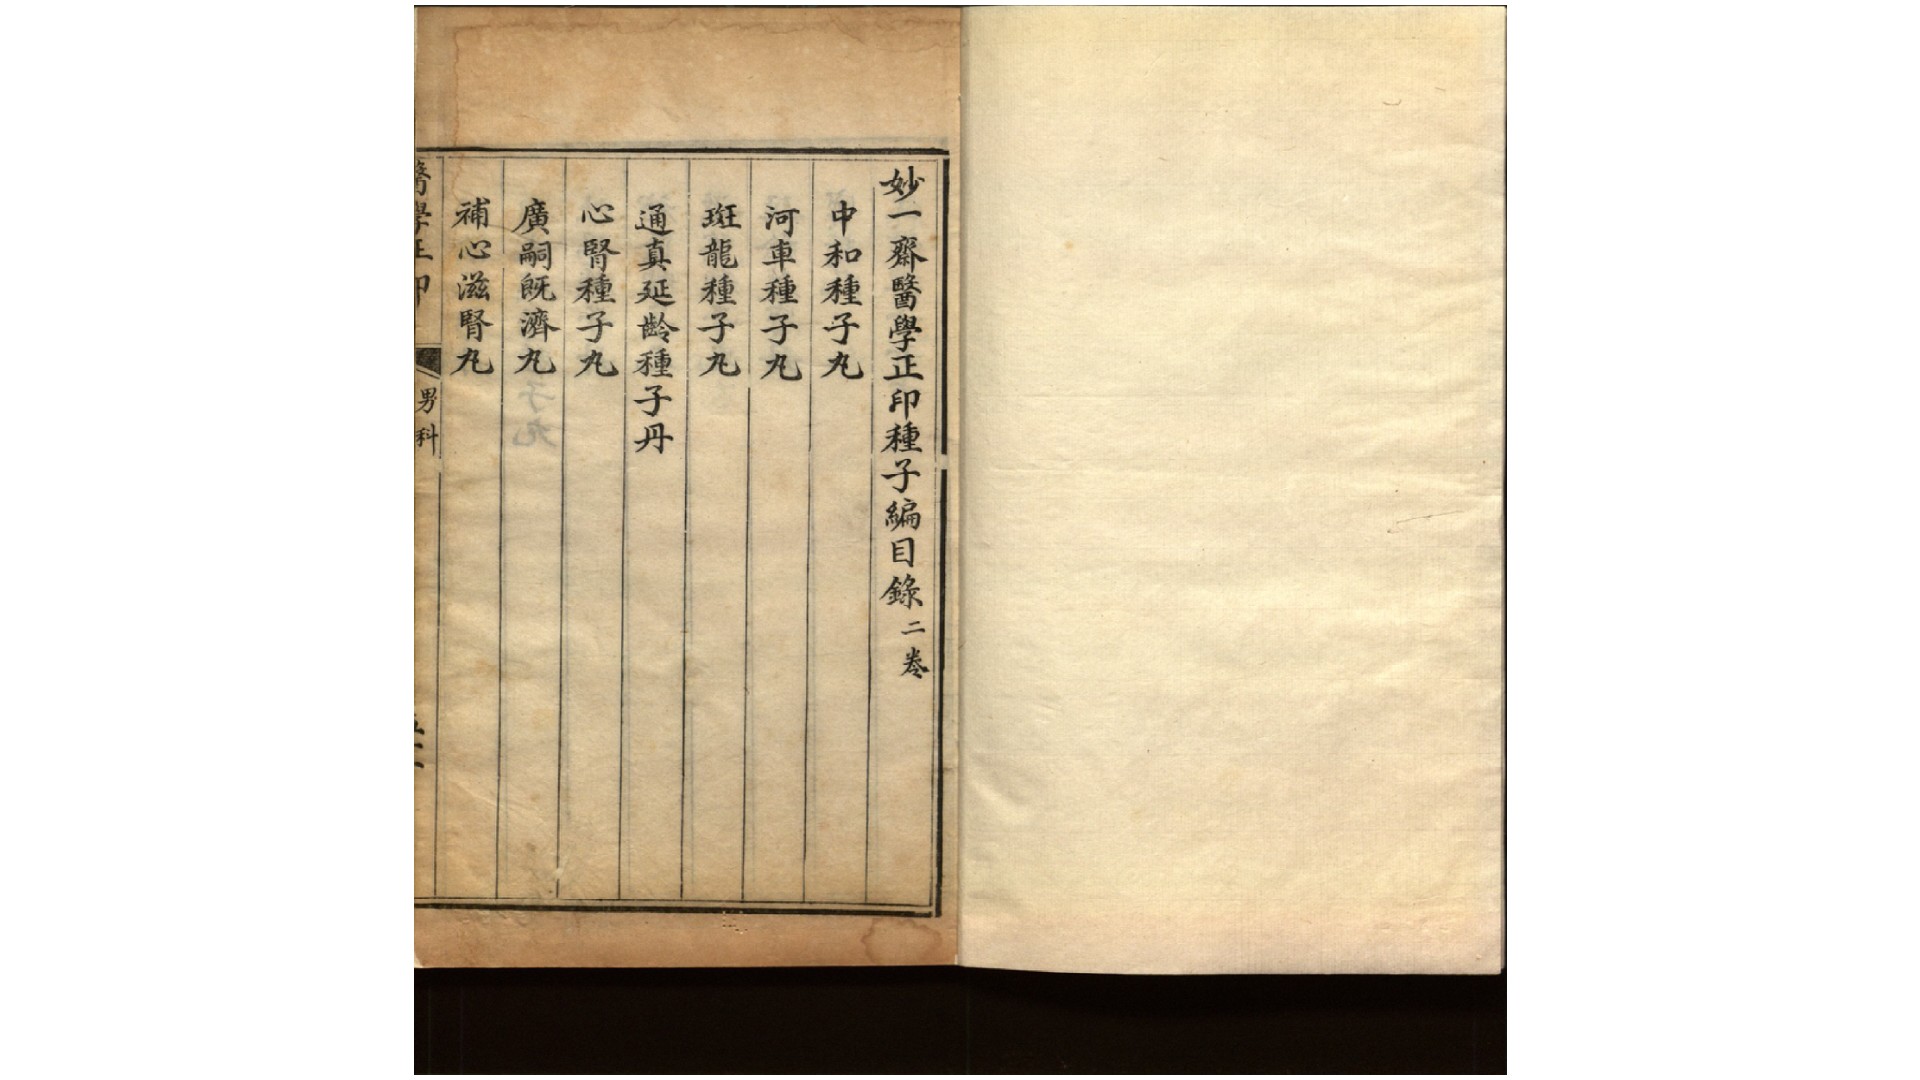 妙一齋醫學正印種子編目錄二卷
中和種子丸
河車種子丸
斑龍種子丸
通真延齡種子丹
心腎種子丸
廣嗣既濟丸
補心滋腎丸
醫學正印
男科